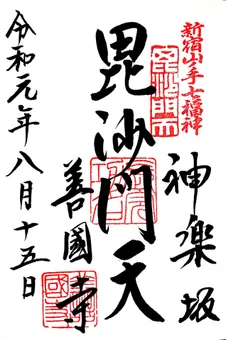 新宿山ノ手七福神
神楽坂
毘沙門天
毘沙門天
善國寺
令和元年八月十五日